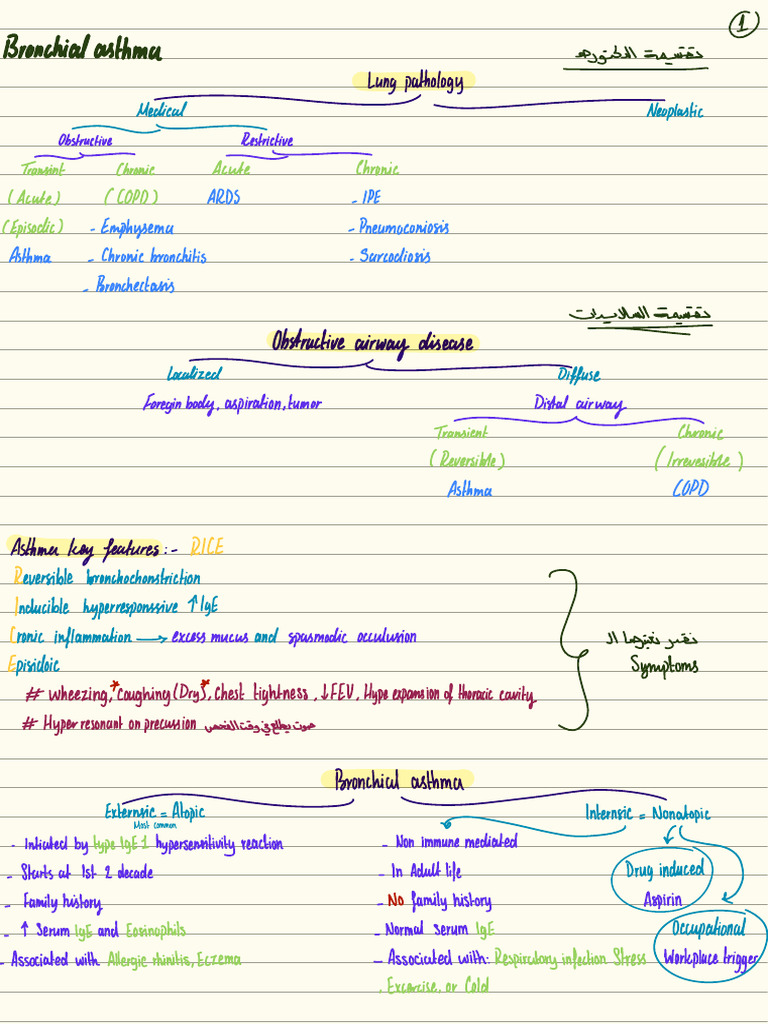 1
Bronchial asthma
تقسيمة الدكتوره
Lung pathology
Medical Neoplastic
Obstructive Restrictive
Transint Chronic Acute Chronic
(Acute) (COPD) ARDS - IPE
(Episodic) - Emphysema - Pneumoconiosis
Asthma - Chronic bronchitis - Sarcodiosis
- Bronchectasis
تقسيمة السلايدات
Obstructive airway disease
Localized Diffuse
Foregin body, aspiration, tumor Distal airway
Transient Chronic
(Reversible) (Irrevesible)
Asthma COPD
Asthma key features :- RICE
Reversible bronchochonstriction
Inducible hyperresponssive ↑ IgE
Cronic inflammation → excess mucus and spasmodic occulusion
نقدر نعتبرها ال
Episidoic
Symptoms
# wheezing,* Coughing (Dry)*, Chest tightness, ↓FEV, Hype expansion of thoracic cavity
# Hyper resonant on precussion صوت يطلع في وقت الفحص
Bronchial asthma
Externsic = Atopic Internsic = Nonatopic
Most common
- Intiated by type IgE 1 hypersensitivity reaction - Non immune mediated
- Starts at 1st 2 decade - In Adult life Drug induced
- Family history - No family history Aspirin
- ↑ Serum IgE and Eosinophils - Normal serum IgE Occupational
- Associated with Allergic rhinitis, Eczema - Associated with: Respiratory infection Stress Workplace trigger
. Excercise, or Cold